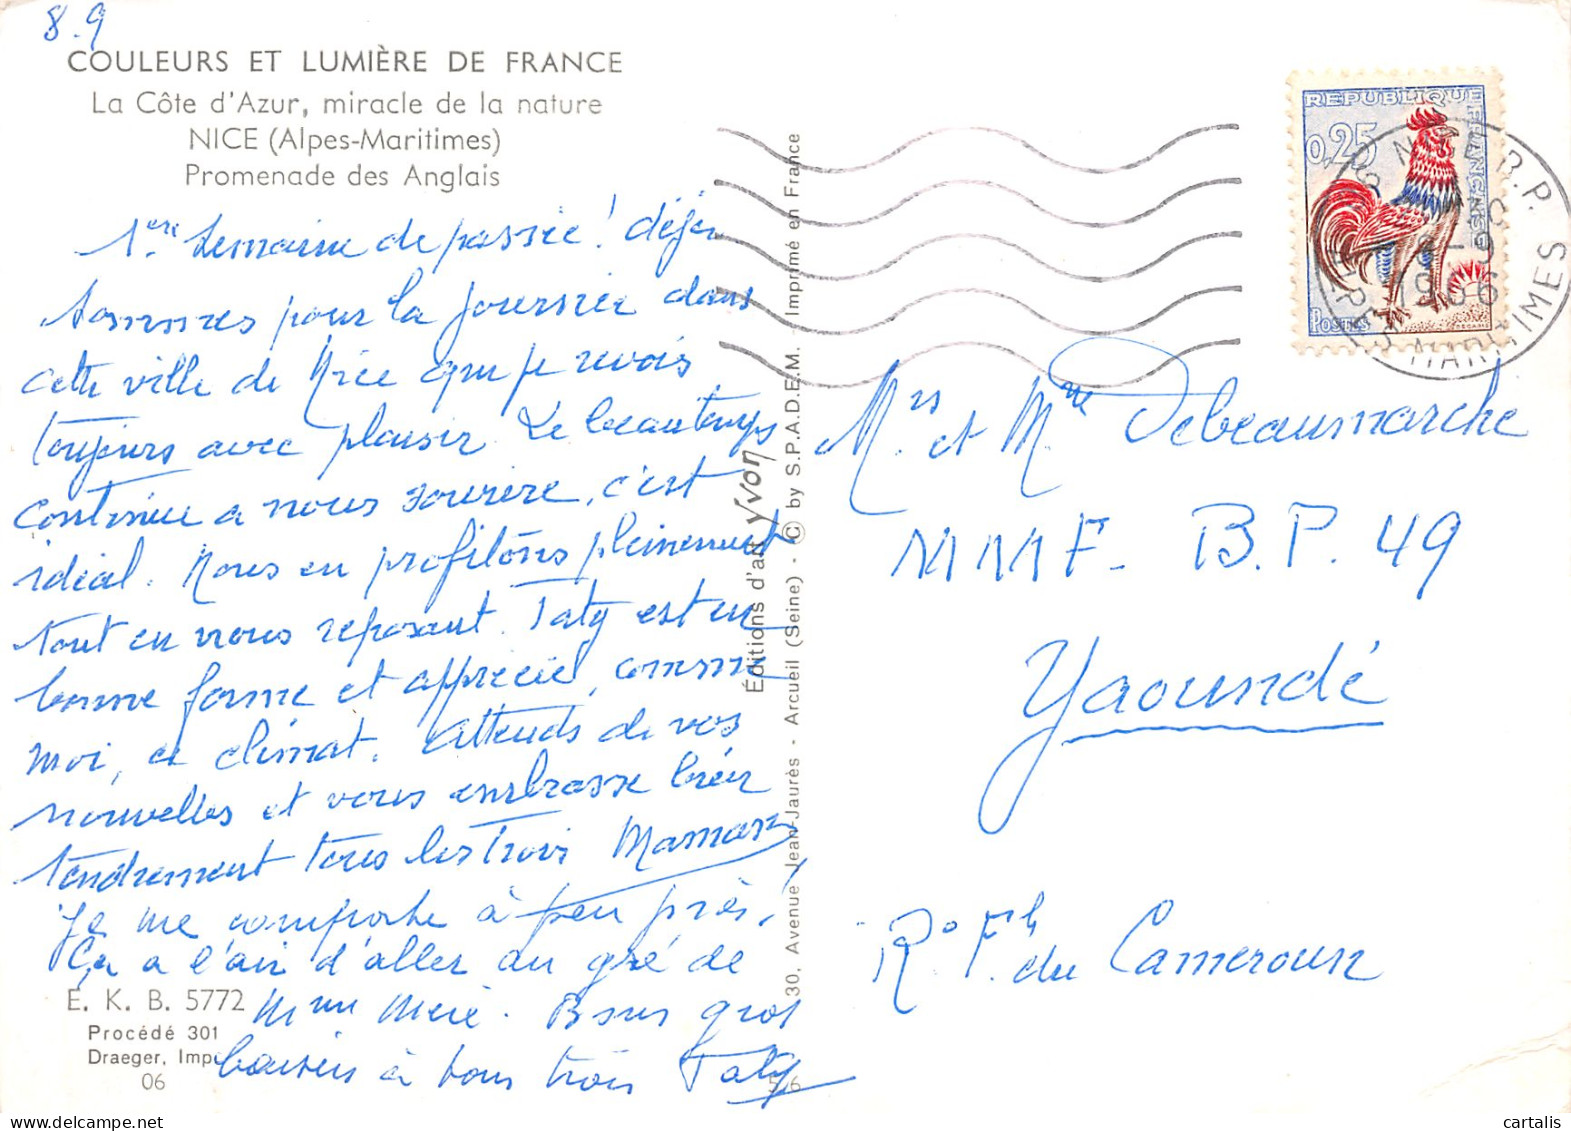 8.9
COULEURS ET LUMIÈRE DE FRANCE
La Côte d'Azur, miracle de la nature
NICE (Alpes-Maritimes)
Promenade des Anglais
1ère Semaine de passée! déjà
Sommes pour la journée dans
cette ville de Nice que je revois
toujours avec plaisir. Le beau temps
continue a nous sourire, c'est
idéal. Nous en profitons pleinement
tout en nous reposant. Taty est en
bonne forme et apprécie, comme
moi, ce climat. Attends de vos
nouvelles et vous embrasse bien
tendrement tous les Trois Maman
Je me comporte à peu près!
Ça a l'air d'aller au gré de
Mme Mère. Bons gros
baisers à tous trois Taty
E. K. B. 5772
Procédé 301
Draeger, Imp
06
Éditions d'art Yvon
30, Avenue Jean-Jaurès - Arcueil (Seine) - © by S.P.A.D.E.M. Imprimé en France
REPUBLIQUE
FRANÇAISE
0,25
POSTES
DECARIS
NICE B.P.
8-9
1966
ALPES MARITIMES
Mrs et Mme Debeaumarche
MMF. B.P. 49
Yaoundé
R° F.le du Cameroun
cartalis
delcampe.net